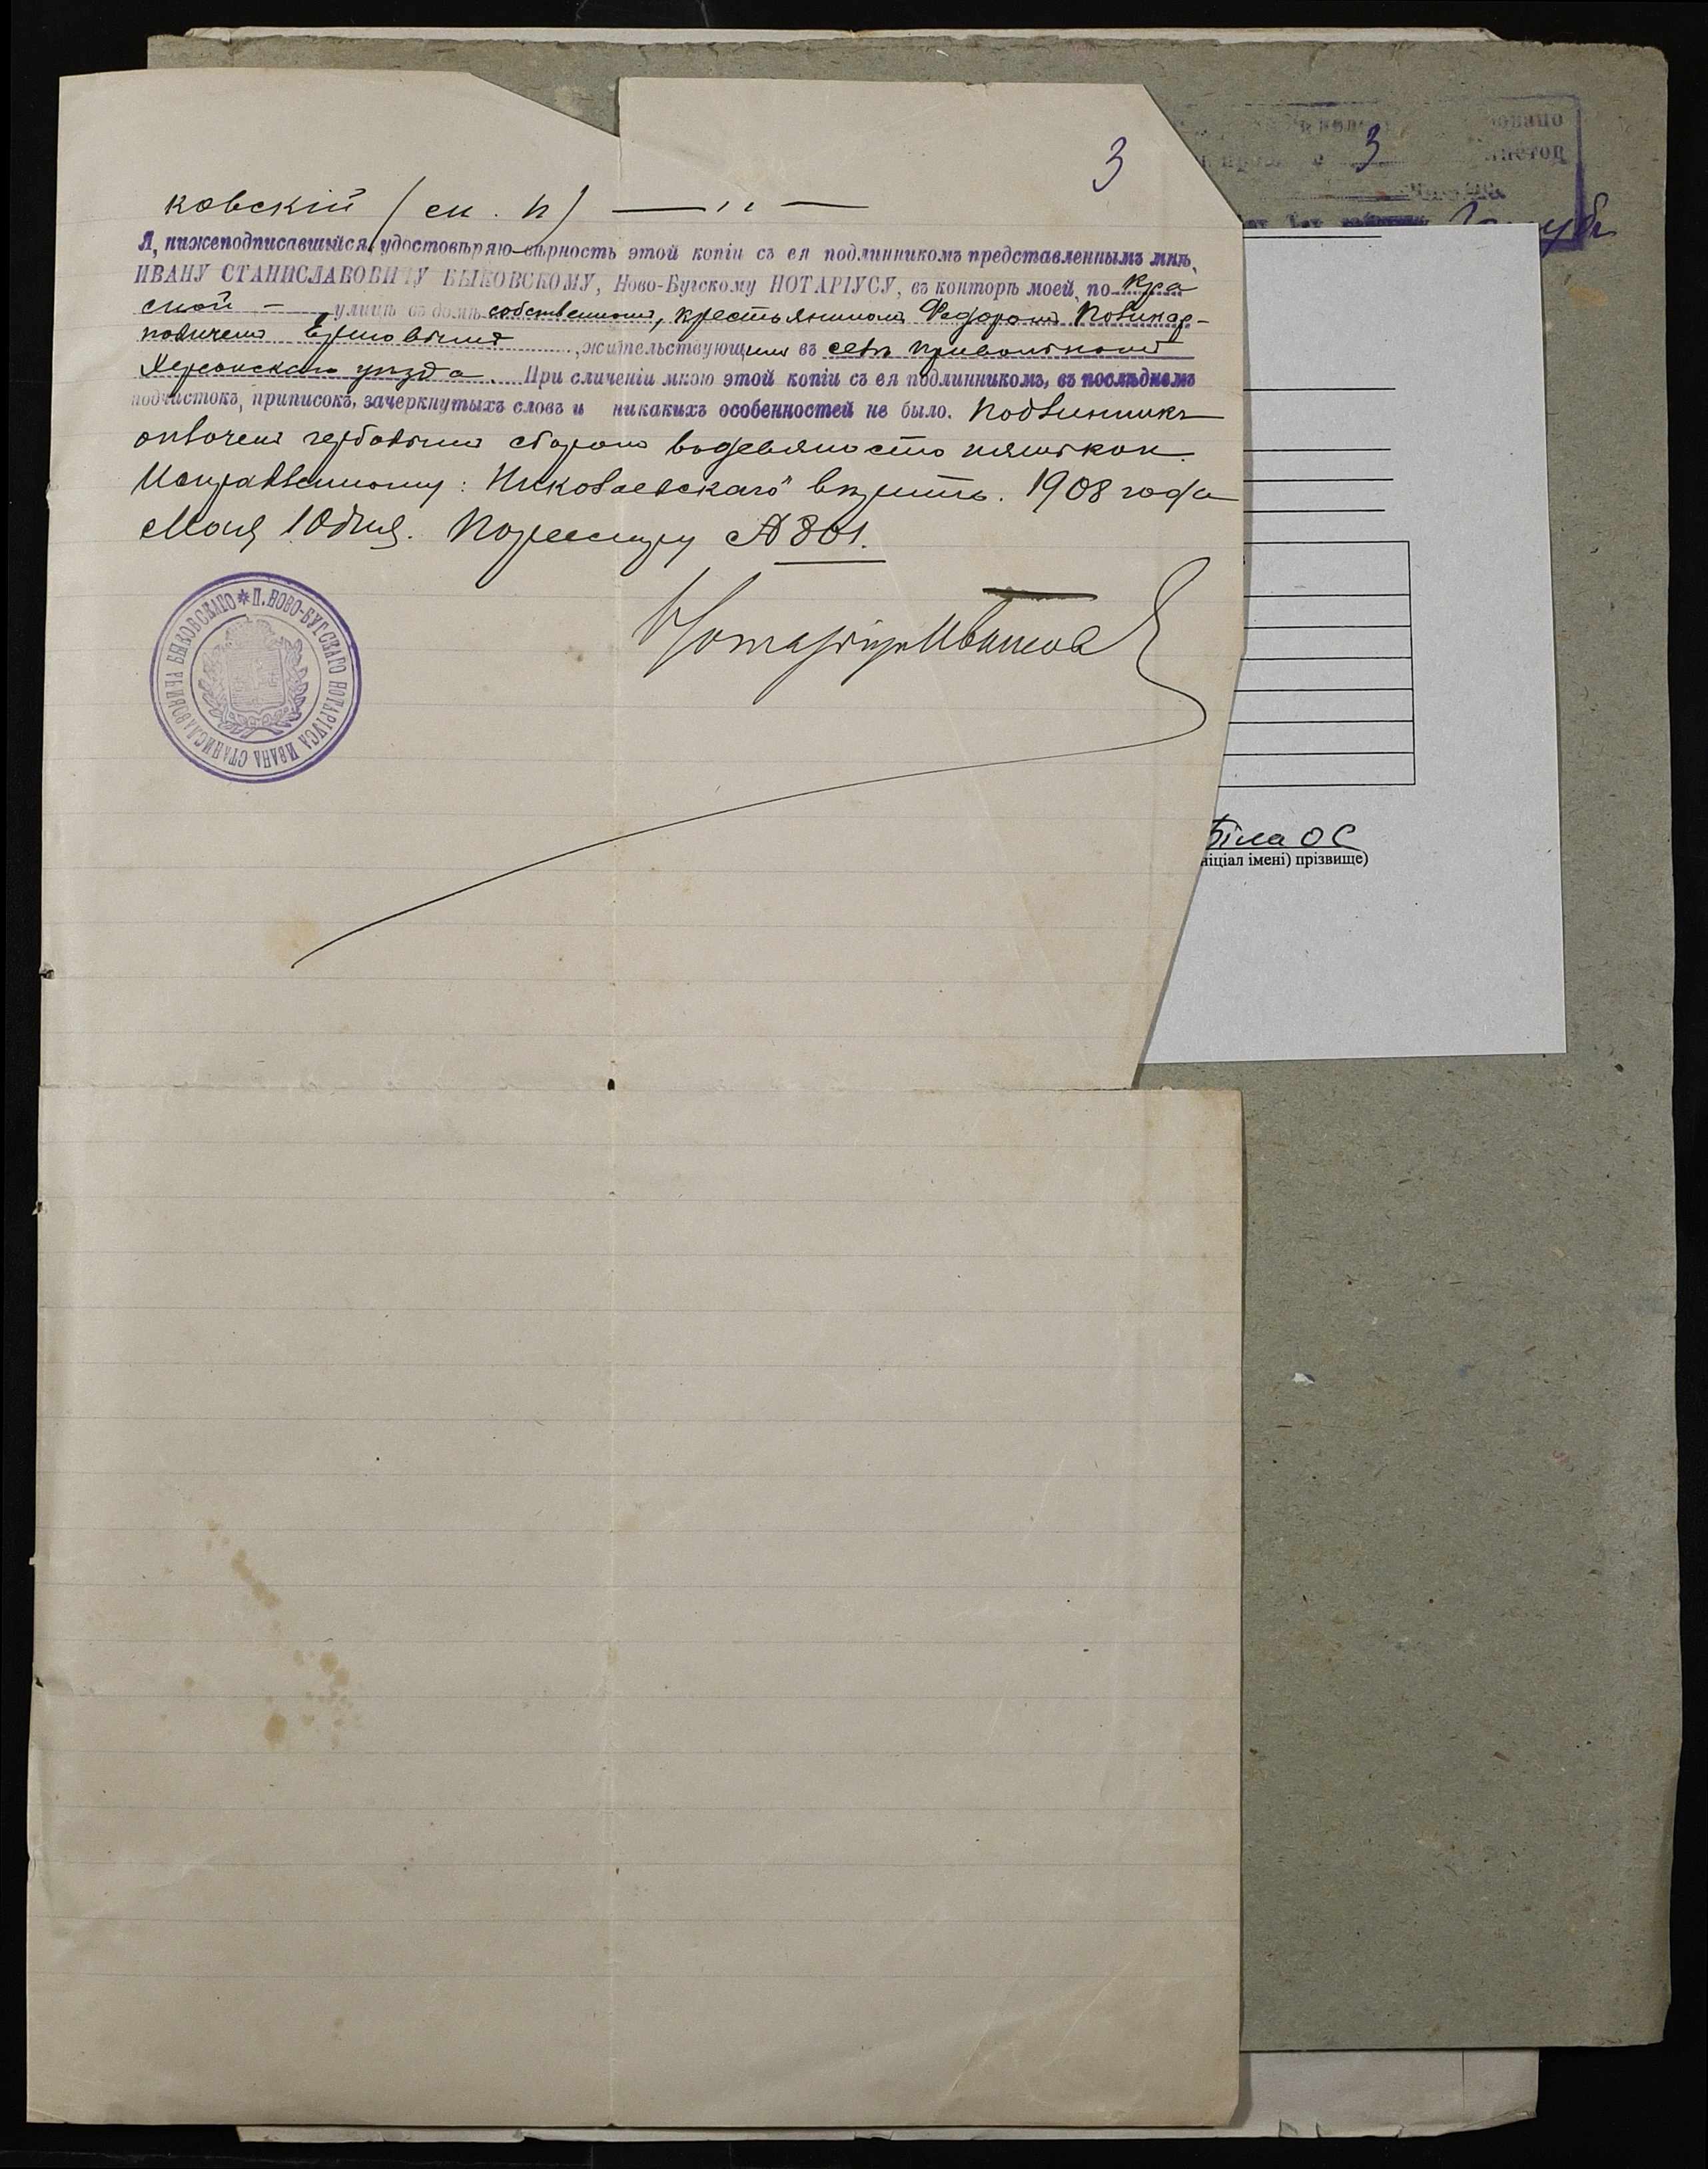 3
ковскій (см. п) — " —
Я, нижеподписавшійся, удостовѣряю вѣрность этой копіи съ ея подлинникомъ представленнымъ мнѣ,
ИВАНУ СТАНИСЛАВОВИЧУ БЫКОВСКОМУ, Ново-Бугскому НОТАРІУСУ, въ конторѣ моей, по
улицѣ въ домѣ собственномъ, крестьяниномъ Федоромъ Поликар-
повичемъ жительствующимъ въ селѣ Привольномъ
Херсонскаго уѣзда. При сличеніи мною этой копіи съ ея подлинникомъ, въ послѣднемъ
подчистокъ, приписокъ, зачеркнутыхъ словъ и никакихъ особенностей не было. Подлинникъ
оплоченъ гербовымъ сборомъ въ девяносто пять коп.
Исправленному: "Николаевскаго" вѣрить. 1908 года
Мая 10 дня. По реестру № 801.
Нотаріусъ
* П. НОВО-БУГСКАГО НОТАРІУСА ИВАНА СТАНИСЛАВОВИЧА БЫКОВСКАГО
3
Біла О С
ініціал імені) прізвище)